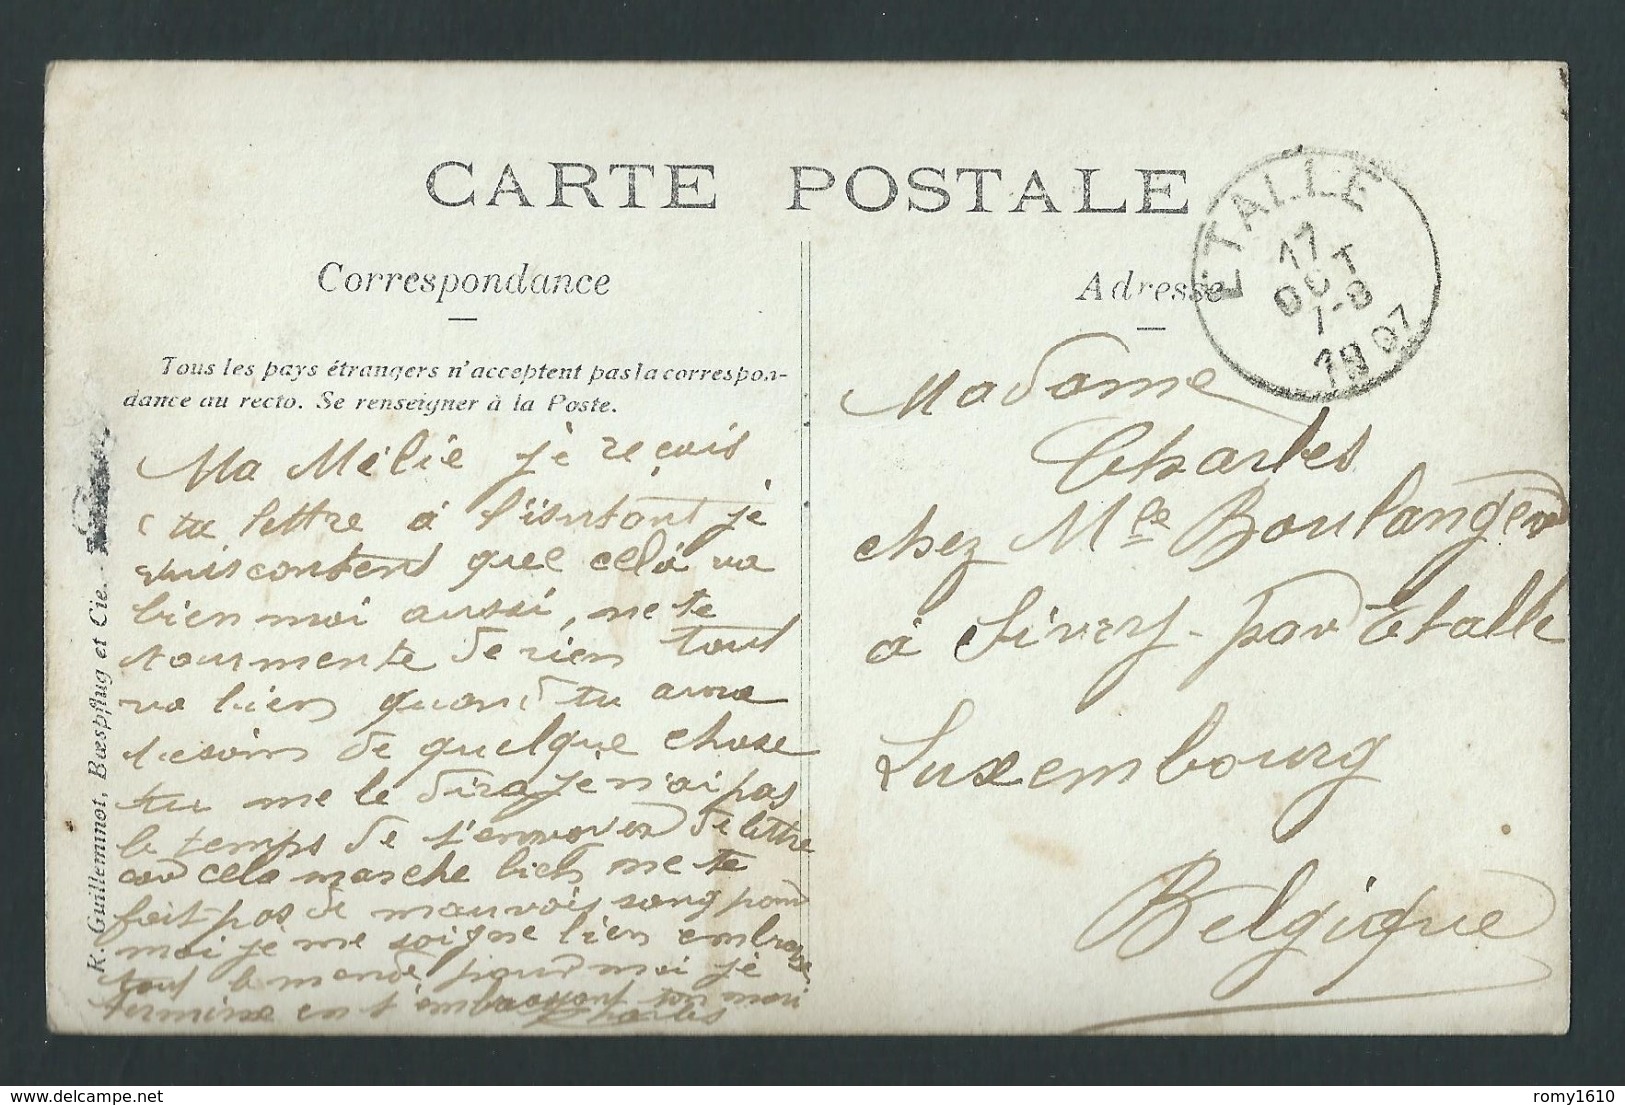 CARTE POSTALE
Correspondance
Tous les pays étrangers n'acceptent pas la correspon-
dance au recto. Se renseigner à la Poste.
Ma Mélie je reçois
ta lettre à l'instant je
suis content que celà va
bien moi aussi, ne te
tourmente de rien tout
va bien quand tu aura
besoin de quelque chose
tu me le dira je n'ai pas
le temps de t'envoyer de lettre
car cela marche bien ne te
fait pas de mauvais sang pour
moi je me soigne bien embrasse
tout le monde pour moi je
termine en t'embrassant ton mari
Charles
R. Guilleminot, Bœspflug et Cie.
Adresse
ETALLE
17
OCT
7-8
1907
Madame
Charles
chez Mlle Boulanger
à Sivry par Etalle
Luxembourg
Belgique
romy1610